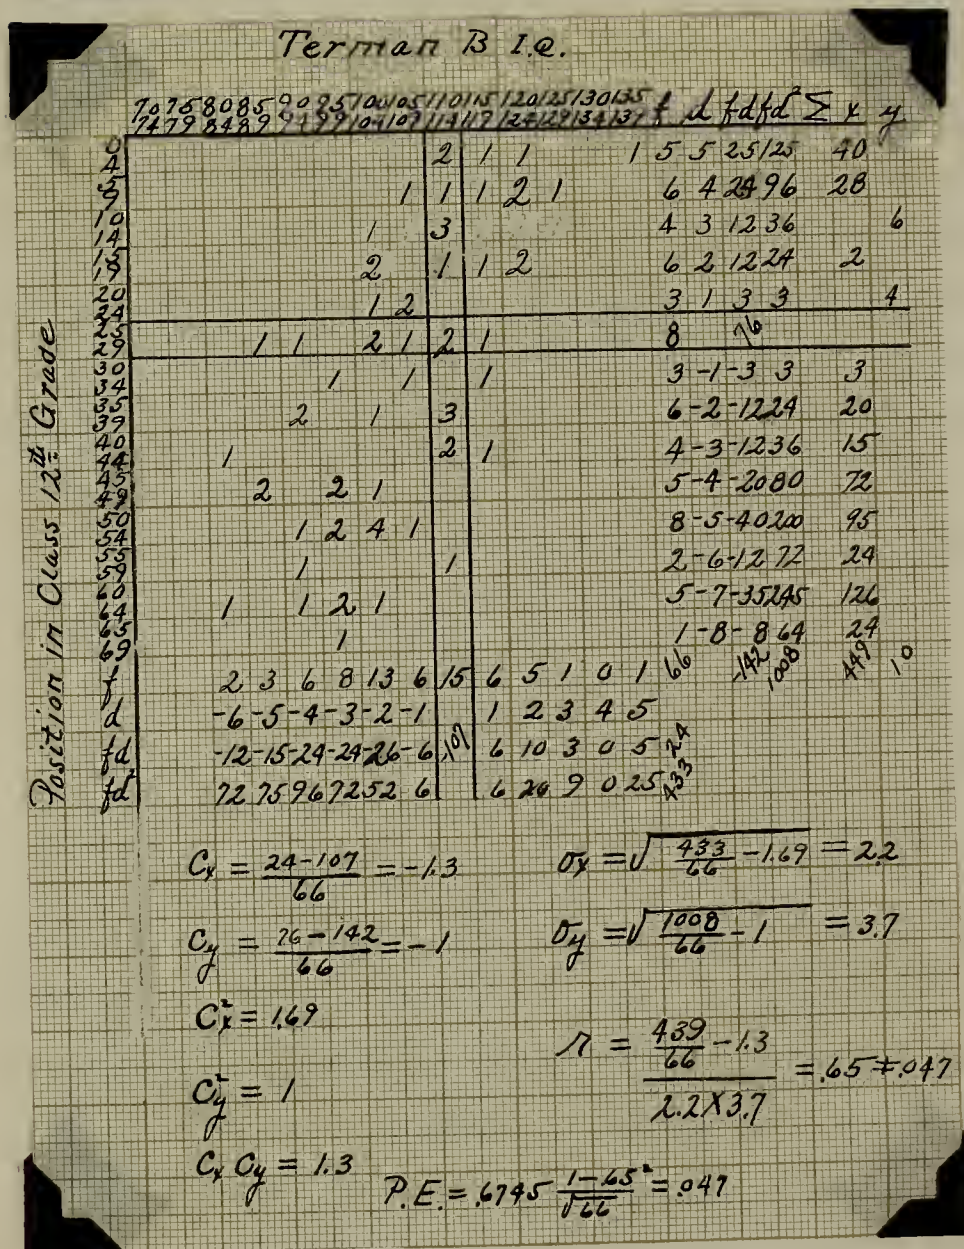 Terman B I.Q.
70 75 80 85 90 95 100 105 110 115 120 125 130 135 f d fd fd² Σ x y
74 79 84 89 94 99 104 109 114 119 124 129 134 139
Position in Class 12th Grade
0 4 2 1 1 1 5 5 25 125 40
5 9 1 1 1 2 1 6 4 24 96 28
10 14 1 3 4 3 12 36 6
15 19 2 1 1 2 6 2 12 24 2
20 24 1 2 3 1 3 3 4
25 29 1 1 2 1 2 1 8 76
30 34 1 1 1 3 -1 -3 3 3
35 39 2 1 3 6 -2 -12 24 20
40 44 1 2 1 4 -3 -12 36 15
45 49 2 2 1 5 -4 -20 80 72
50 54 1 2 4 1 8 -5 -40 200 95
55 59 1 1 2 -6 -12 72 24
60 64 1 1 2 1 5 -7 -35 245 126
65 69 1 1 -8 -8 64 24
f 2 3 6 8 13 6 15 6 5 1 0 1 66 -142 1008 449 10
d -6 -5 -4 -3 -2 -1 1 2 3 4 5
fd -12 -15 -24 -24 -26 -6 -107 6 10 3 0 5 24
fd² 72 75 96 72 52 6 6 20 9 0 25 433
Cx = 24-107/66 = -1.3
σx = √433/66 -1.69 = 2.2
Cy = 76-142/66 = -1
σy = √1008/66 - 1 = 3.7
Cx² = 1.69
r = 439/66 - 1.3 / 2.2 X 3.7 = .65 ∓ .047
Cy² = 1
Cx Cy = 1.3
P.E. = .6745 1-.65²/√66 = .047